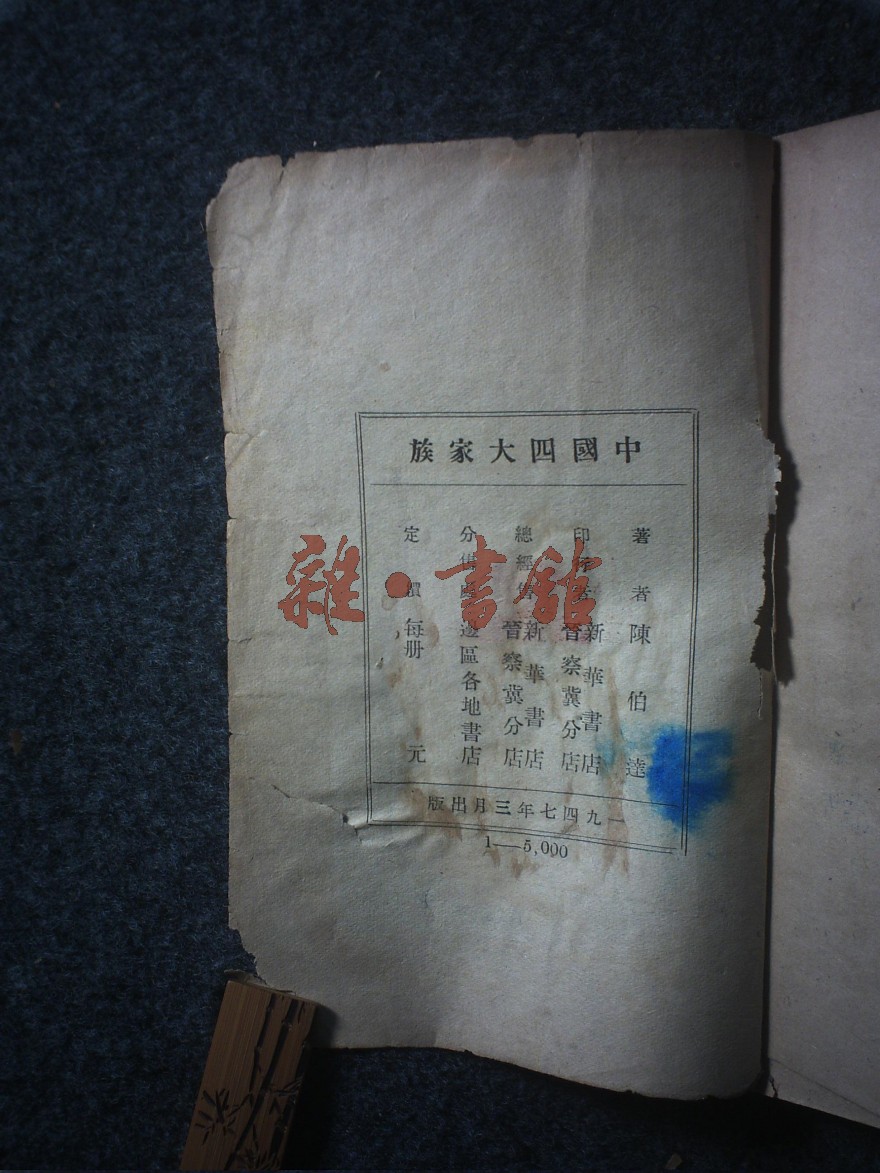 中國四大家族
著者 陳伯達
印行者 新華書店晉察冀分店
總經售 新華書店晉察冀分店
分售處 邊區各地書店
定價 每册 元
一九四七年三月出版
1—5,000
雜·書館